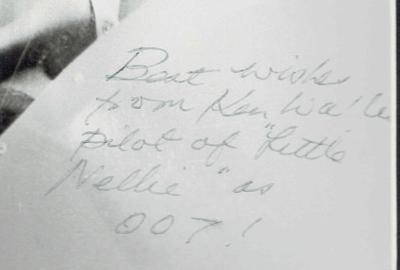 Best wishes
from Ken Wallis
pilot of "Little
Nellie" as
007!